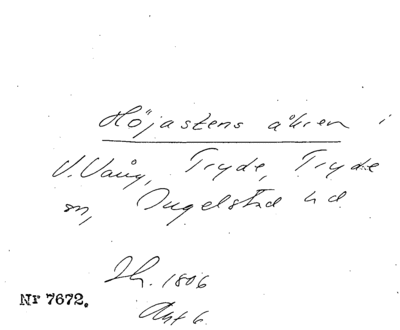 Höjastens åkren i
V. Vång, Tryde, Tryde
sn, Ingelstad hd.
Sh. 1806
Akt 6.
Nr 7672.